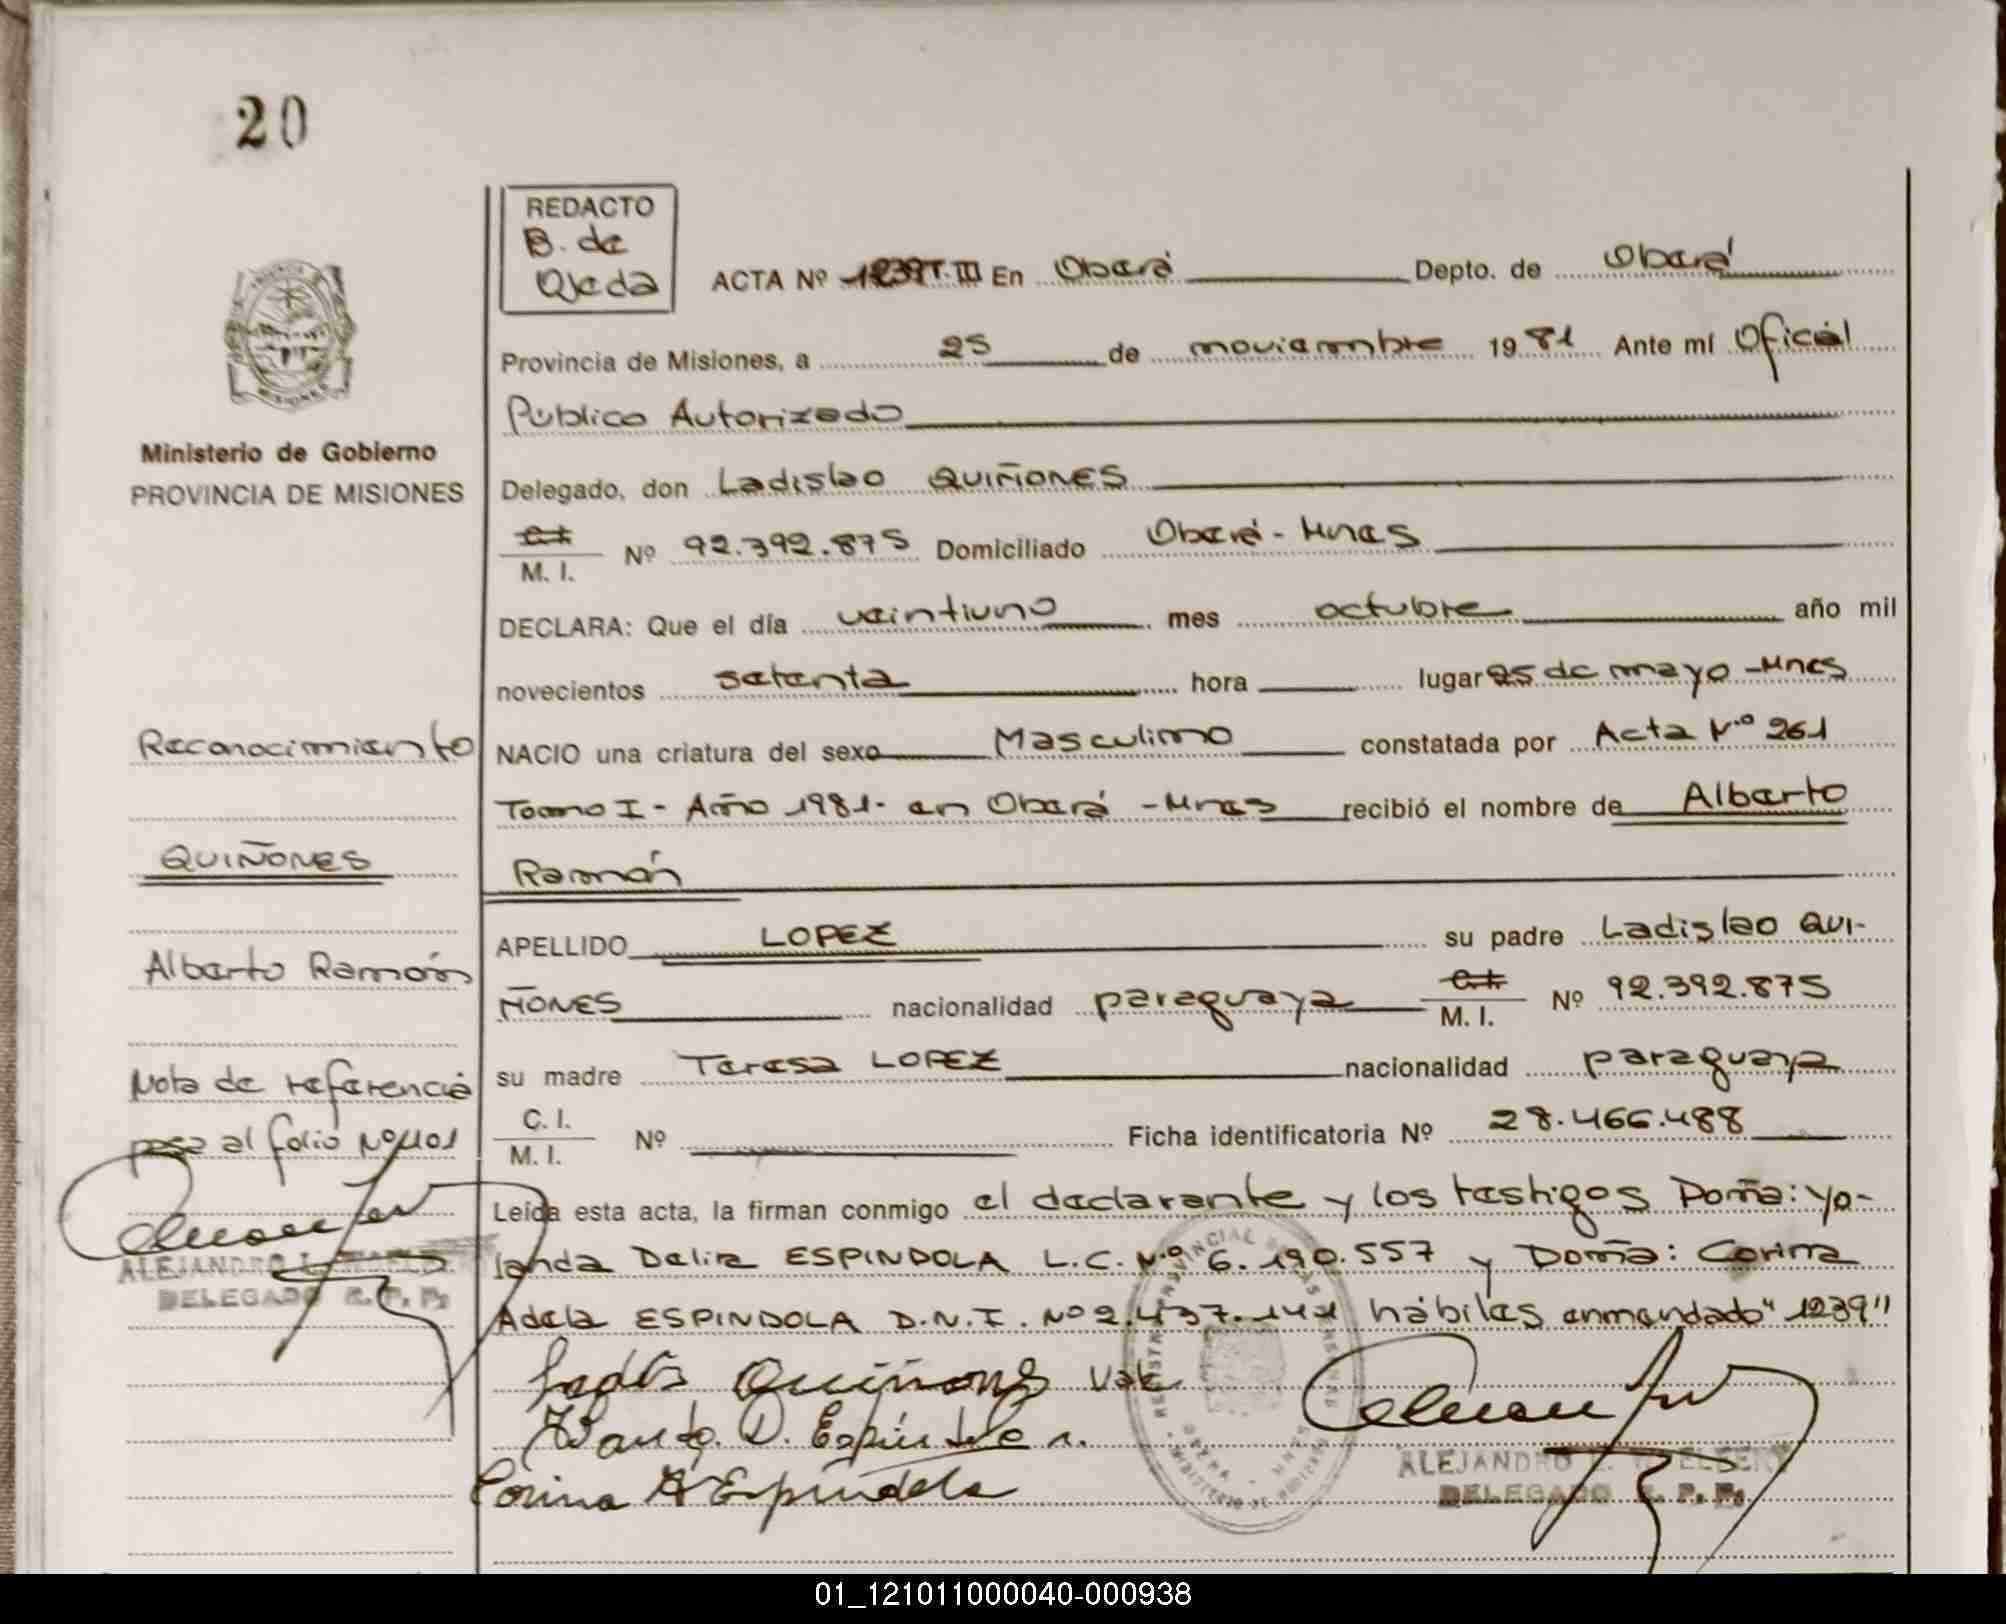 20
REDACTO
B. de
Ojeda
ACTA Nº 1239 T. III En Oberá Depto. de Oberá
Provincia de Misiones, a 25 de noviembre 1981 Ante mí Oficial
Público Autorizado
Ministerio de Gobierno
PROVINCIA DE MISIONES
Delegado, don Ladislao QUIÑONES
C.I.
M. I. Nº 92.392.875 Domiciliado Oberá - Mnes
DECLARA: Que el día veintiuno mes octubre año mil
novecientos setenta hora lugar 25 de mayo - Mnes
Reconocimiento
NACIO una criatura del sexo Masculino constatada por Acta Nº 261
Tomo I - Año 1981 - en Oberá - Mnes recibió el nombre de Alberto
QUIÑONES
Ramón
APELLIDO LOPEZ su padre Ladislao QUI-
Alberto Ramón
ÑONES nacionalidad paraguaya C.I. M. I. Nº 92.392.875
Nota de referencia
su madre Teresa LOPEZ nacionalidad paraguaya
pasa al folio Nº 401
C. I.
M. I. Nº Ficha identificatoria Nº 28.466.488
Leida esta acta, la firman conmigo el declarante y los testigos Doña: Yo-
landa Delia ESPINDOLA L.C. Nº 6.190.557 y Doña: Corina
Adela ESPINDOLA D.N.I. Nº 2.437.141 hábiles enmendado "1239"
Vale
Quiñones
D. Espíndola
Corina A Espindola
ALEJANDRO L.
DELEGADO R. P. P.
ALEJANDRO L.
DELEGADO R. P. P.
01_121011000040-000938